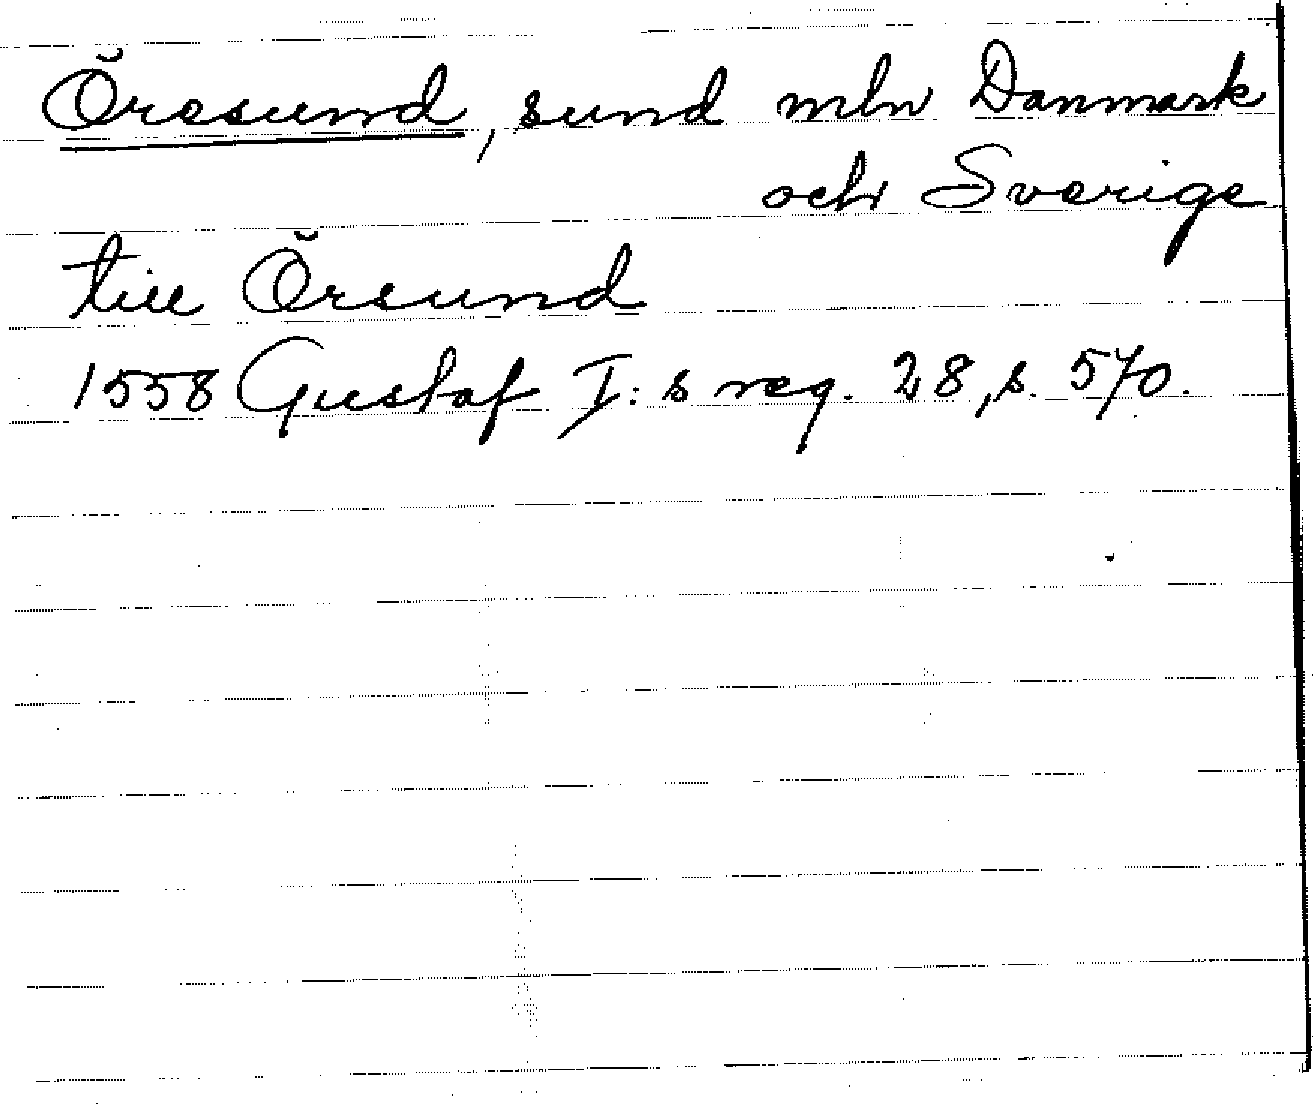 Öresund, sund mln Danmark
och Sverige
till Örsund
1558 Gustaf I:s reg. 28, s. 570.